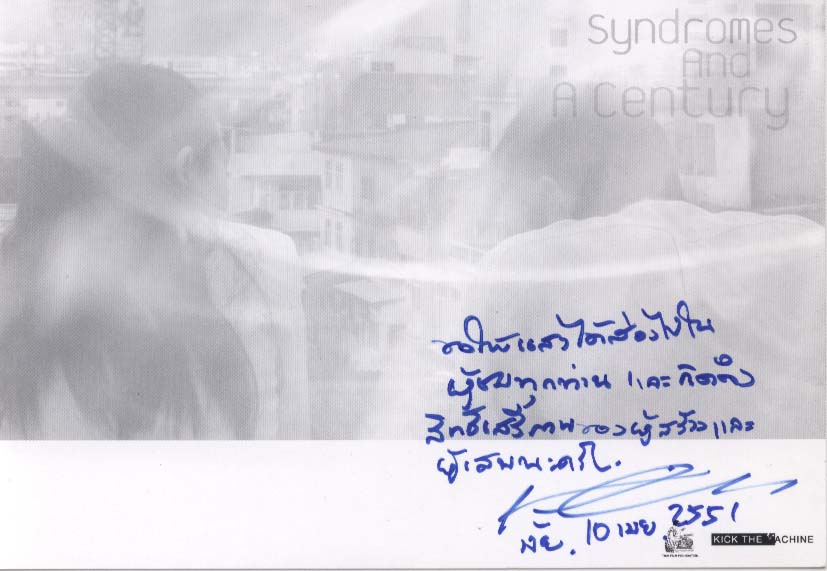 Syndromes
And
A Century
ขอให้แสงได้ส่องไปใน
ผู้ชมทุกท่าน และคิดถึง
สิทธิเสรีภาพของผู้สร้างและ
ผู้เสพนะครับ.
10 เมย. 2551
THAI FILM FOUNDATION
KICK THE MACHINE